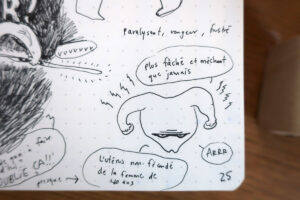 R?
paralysant, rongeur, frustré
Plus fâché et méchant
que jamais
L'utérus non-fécondé
de la femme de
40 ans
ARRR
à faire
ÇA!!!
presque
25